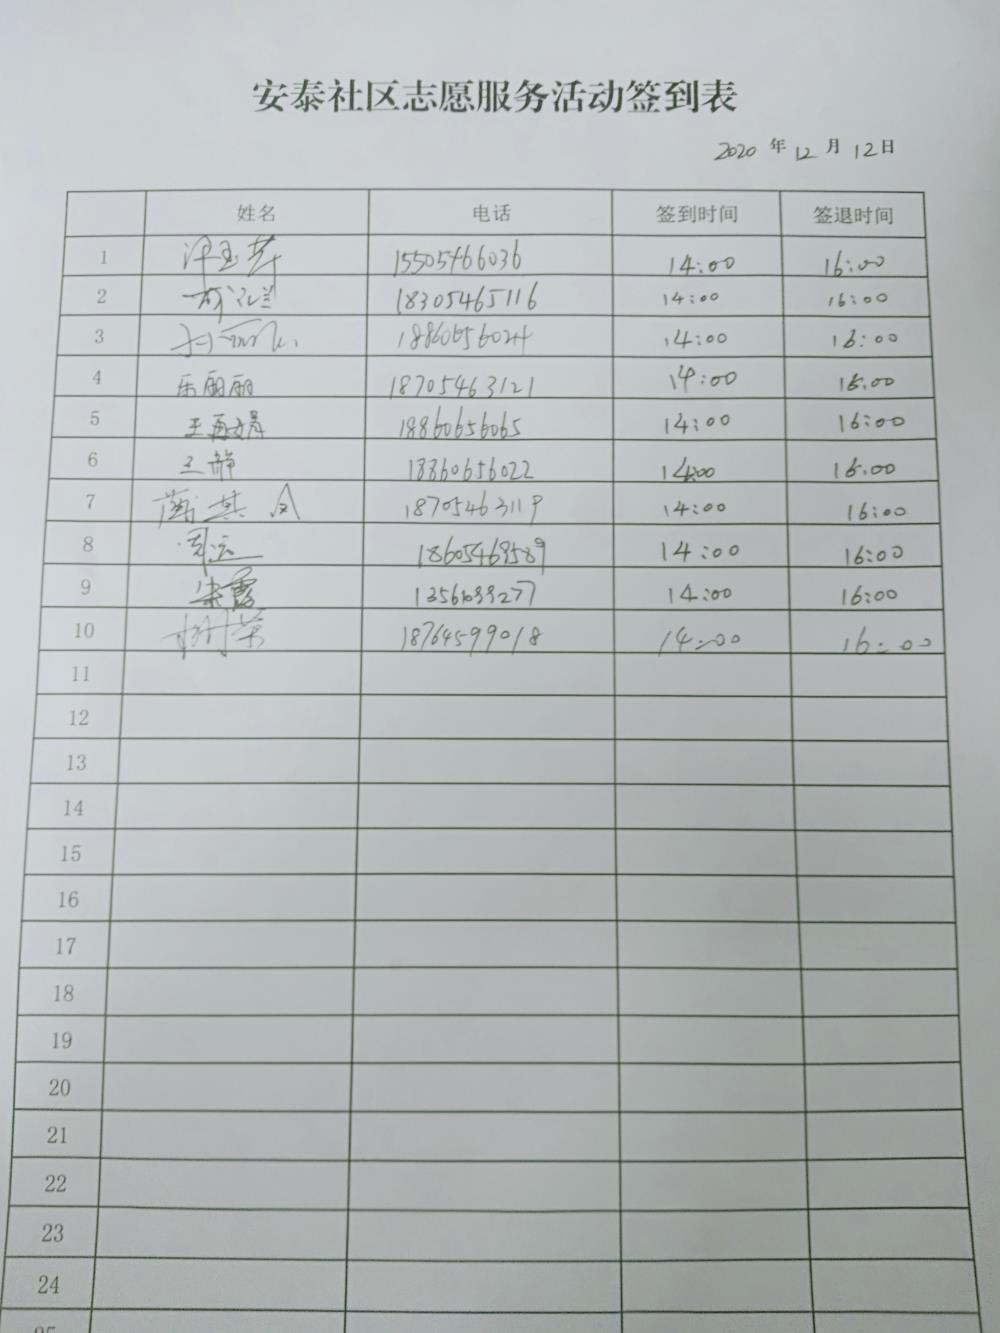 安泰社区志愿服务活动签到表
2020 年 12 月 12 日
姓名 电话 签到时间 签退时间
1 15505466036 14:00 16:00
2 18305465116 14:00 16:00
3 18860656024 14:00 16:00
4 乐丽丽 18705463121 14:00 16:00
5 王再婷 18860656065 14:00 16:00
6 王静 18860656022 14:00 16:00
7 蔺其凤 18705463119 14:00 16:00
8 周运 18605469589 14:00 16:00
9 朱霞 14:00 16:00
10 18764599018 14:00 16:00
11
12
13
14
15
16
17
18
19
20
21
22
23
24